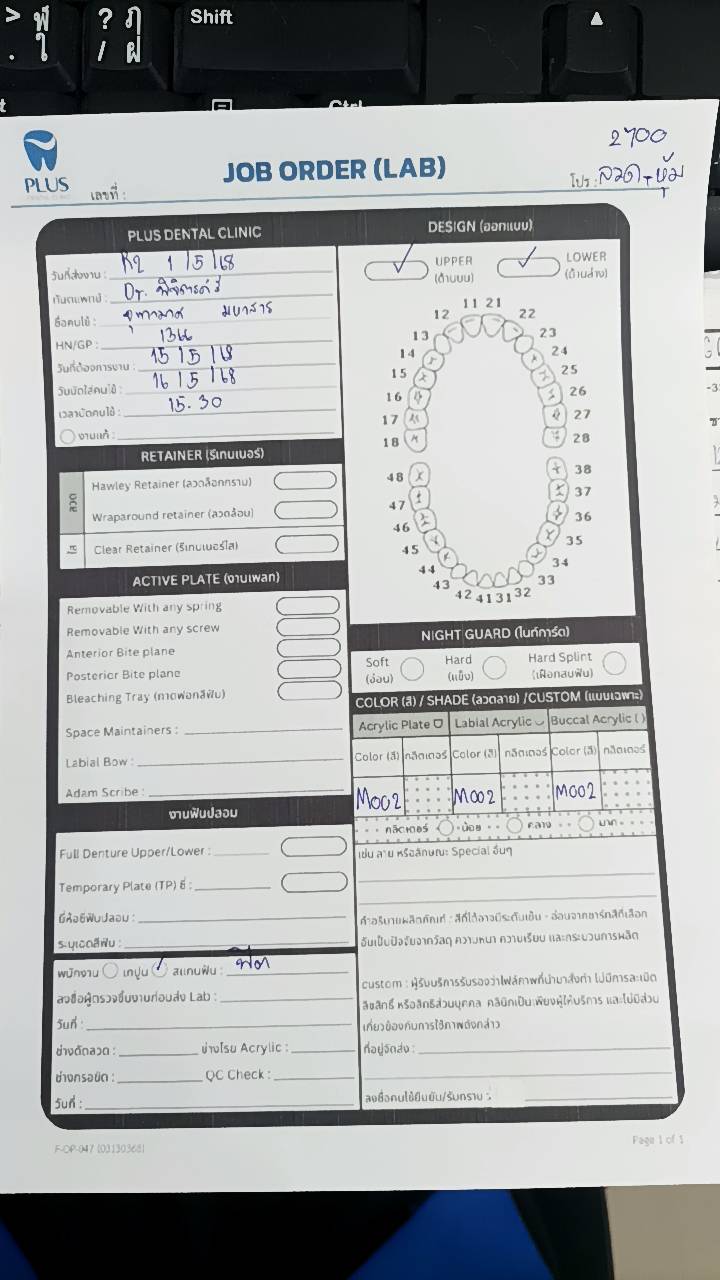 > พั
. ใ
? ฦ
/ ฝ
Shift
▲
Ctrl
PLUS
DENTAL CLINIC
JOB ORDER (LAB)
2700
เลขที่ :
โปร : ลวด+หุ้ม
PLUS DENTAL CLINIC
วันที่ส่งงาน : R2 1/5/68
ทันตแพทย์ : Dr.
ชื่อคนไข้ : จุฑามาศ
HN/GP :
วันที่ต้องการงาน : 15/5/68
วันนัดใส่คนไข้ : 16/5/68
เวลานัดคนไข้ : 15.30
งานแก้ :
RETAINER (รีเทนเนอร์)
ลวด
Hawley Retainer (ลวดล็อกกราม)
Wraparound retainer (ลวดล้อม)
ใส
Clear Retainer (รีเทนเนอร์ใส)
ACTIVE PLATE (งานเพลท)
Removable With any spring
Removable With any screw
Anterior Bite plane
Posterior Bite plane
Bleaching Tray (ถาดฟอกสีฟัน)
Space Maintainers :
Labial Bow :
Adam Scribe :
งานฟันปลอม
Full Denture Upper/Lower :
Temporary Plate (TP) ซี่ :
ยี่ห้อซี่ฟันปลอม :
ระบุเฉดสีฟัน :
พนักงาน เทปูน ✓ สแกนฟัน :
ลงชื่อผู้ตรวจชิ้นงานก่อนส่ง Lab :
วันที่ :
ช่างดัดลวด : ช่างโรย Acrylic :
ช่างกรอขัด : QC Check :
วันที่ :
DESIGN (ออกแบบ)
✓ UPPER (ด้านบน)
✓ LOWER (ด้านล่าง)
11 21
12 22
13 23
14 24
15 25
16 26
17 27
18 28
48 38
47 37
46 36
45 35
44 34
43 33
42 41 31 32
NIGHT GUARD (ไนท์การ์ด)
Soft (อ่อน)
Hard (แข็ง)
Hard Splint (เฝือกสบฟัน)
COLOR (สี) / SHADE (ลวดลาย) /CUSTOM (แบบเฉพาะ)
Acrylic Plate Labial Acrylic Buccal Acrylic ( )
Color (สี) กลิตเตอร์ Color (สี) กลิตเตอร์ Color (สี) กลิตเตอร์
M002 M002 M002
กลิตเตอร์ น้อย กลาง มาก
เช่น ลาย หรือลักษณะ Special อื่นๆ
คำอธิบายผลิตภัณฑ์ : สีที่ได้อาจมีระดับเข้ม - อ่อนจากชาร์ทสีที่เลือก
อันเป็นปัจจัยจากวัสดุ ความหนา ความเรียบ และกระบวนการผลิต
custom : ผู้รับบริการรับรองว่าไฟล์ภาพที่นำมาสั่งทำ ไม่มีการละเมิด
ลิขสิทธิ์ หรือสิทธิส่วนบุคคล คลินิกเป็นเพียงผู้ให้บริการ และไม่มีส่วน
เกี่ยวข้องกับการใช้ภาพดังกล่าว
ที่อยู่จัดส่ง :
ลงชื่อคนไข้ยืนยัน/รับทราบ :
F-OP-047 (03130368)
Page 1 of 1